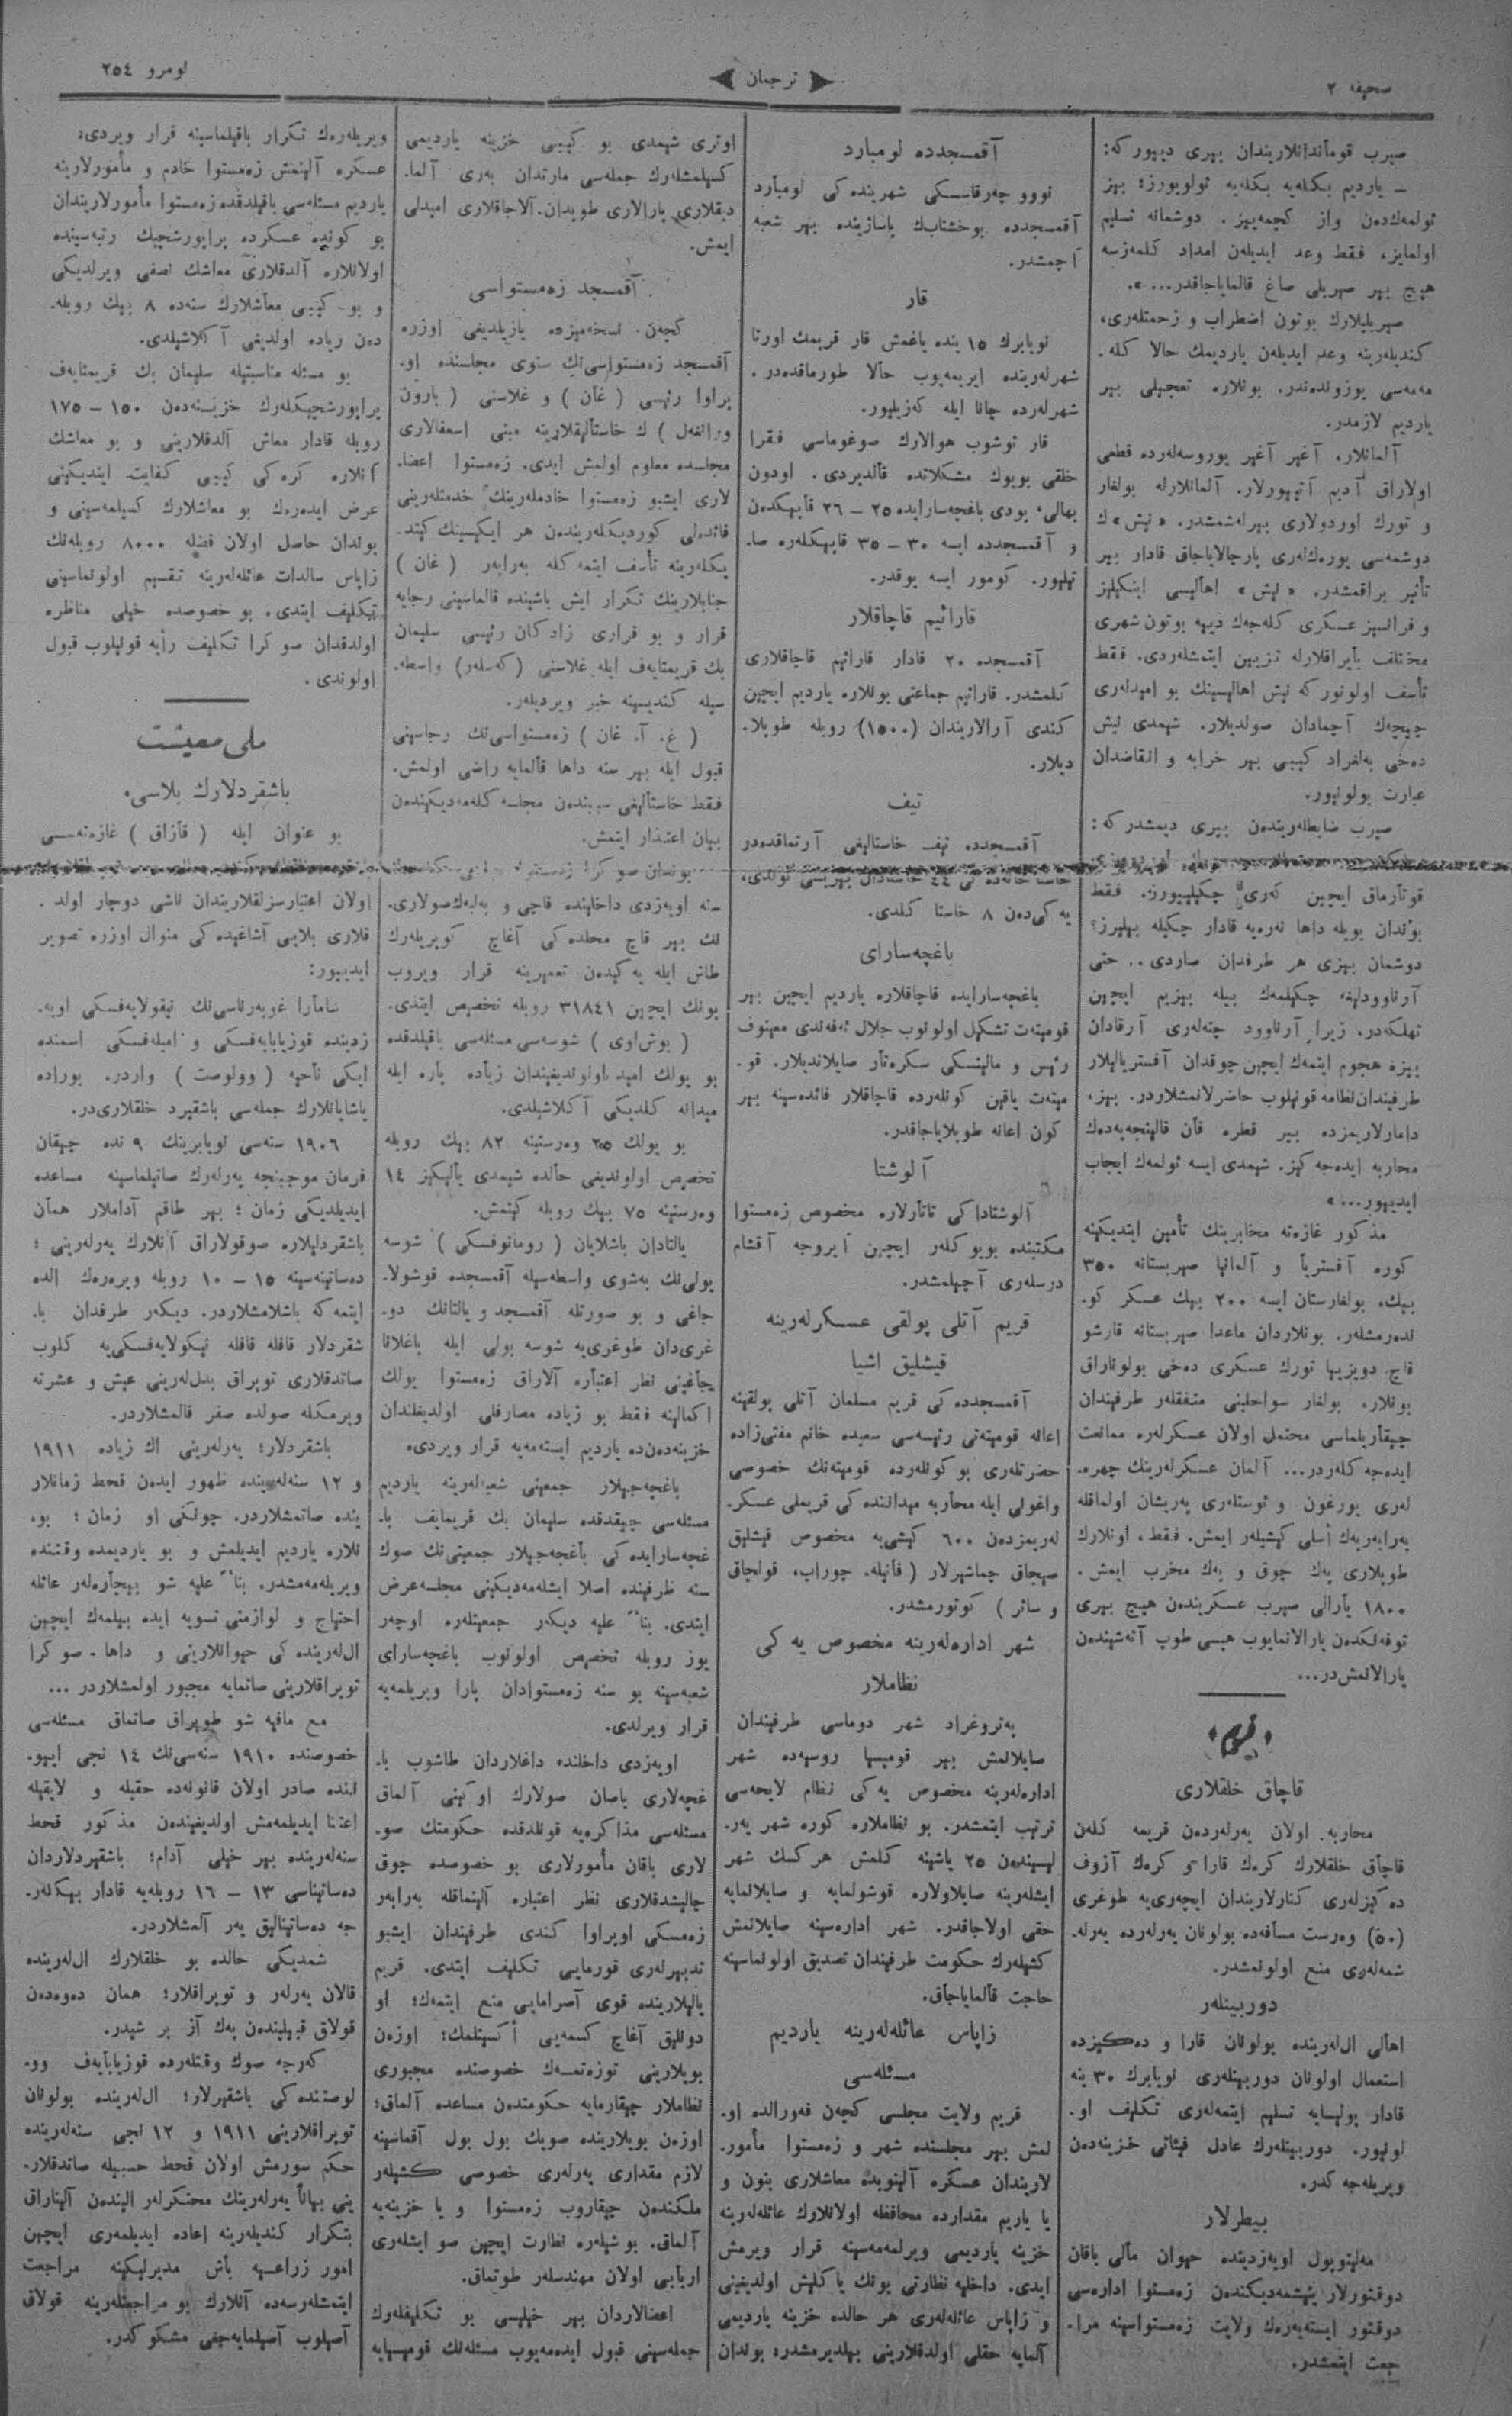 صحیفه ٢
ترجمان
نومرو ٢٥٤
صیرب قوماندانلاریندان بیری دییور كه:
ـ یاردیم بكله‌یه بكله‌یه ئولویورز؛ بیز
ئولمه‌كده‌ن واز كچمه‌ییز. دوشمانه تسلیم
اولمایز، فقط وعد ایدیله‌ن امداد كلمه‌زسه
هیچ بیر صیربلی صاغ قالمایاجاقدر...».
صیربلیلارك بوتون اضطراب و زحمتله‌ری،
كندیله‌رینه وعد ایدیله‌ن یاردیمك حالا كله‌ـ
مه‌مه‌سی یوزونده‌ندر. بونلاره تعجیلی بیر
یاردیم لازمدر.
آلمانلار، آغیر آغیر یوروسه‌له‌رده قطعی
اولاراق آدیم آتییورلار. آلمانلارله بولغار
و تورك اوردولاری بیرله‌شمشدر. «نیش» ك
دوشمه‌سی یوره‌كله‌ری پارچالایاجاق قادار بیر
تأثیر براقمشدر. «نیش» اهالیسی اینكیلیز
و فرانسیز عسكری كله‌جه‌ك دییه بوتون شهری
مختلف بایراقلارله تزیین ایتمشله‌ردی. فقط
تأسف اولونور كه نیش اهالیسینك بو امیدله‌ری
چیچه‌ك آچمادان صولدیلار. شیمدی نیش
ده‌خی به‌لغراد كیبی بیر خرابه و انقاضدان
عبارت بولونیور.
صیرب ضابطله‌ریندن بیری دیمشدر كه:
قورتارماق ایچین كه‌ری چكیلییورز. فقط
بوندان بویله داها نه‌ره‌یه قادار چكیله بیلیرز؟
دوشمان بیزی هر طرفدان صاردی.. حتی
آرناوودلغه چكیلمه‌ك بیله بیزیم ایچین
تهلكه‌در. زیرا آرناوود چته‌له‌ری آرقادان
بیزه هجوم ایتمه‌ك ایچین چوقدان آفستریالیلار
طرفیندان نظامه قونیلوب حاضرلانمشلاردر. بیز،
دامارلاریمزده بیر قطره قان قالینجه‌یه‌ده‌ك
محاربه ایده‌جه كیز. شیمدی ایسه ئولمه‌ك ایجاب
ایدییور...»
مذكور غازه‌ته مخابرینك تأمین ایتدیكینه
كوره آفستریا و آلمانیا صیربستانه ٣٥٠
بیك، بولغارستان ایسه ٢٠٠ بیك عسكر كوـ
نده‌رمشله‌ر. بونلاردان ماعدا صیربستانه قارشو
قاچ دویزییا تورك عسكری ده‌خی بولوناراق
بونلار، بولغار سواحلینی متفقله‌ر طرفیندان
چیقاریلماسی محتمل اولان عسكرله‌ره ممانعت
ایده‌جه كله‌ردر... آلمان عسكرله‌رینك چهره‌ـ
له‌ری یورغون و ئوستله‌ری په‌ریشان اولماقله
به‌رابه‌ر په‌ك اسلی كیشیله‌ر ایمش. فقط، اونلارك
طوپلاری په‌ك چوق و په‌ك مخرب ایمش.
١٨٠٠ یارالی صیرب عسكریندن هیچ بیری
توفه‌نكدن یارالانمایوب هپسی طوپ آته‌شیندن
یارالانمش‌در...
قریم
قاچاق خلقلاری
محاربه اولان یه‌رله‌ردن قریمه كله‌ن
قاچاق خلقلارك كره‌ك قارا و كره‌ك آزوف
ده‌كیزله‌ری كنارلاریندان ایچه‌ری‌یه طوغری
(٥٠) وه‌رست مسافه‌ده بولونان یه‌رله‌رده یه‌رله‌ـ
شمه‌له‌ری منع اولونمشدر.
دوربینله‌ر
اهالی ال‌له‌رینده بولونان قارا و ده‌كیزده
استعمال اولونان دوربینله‌ری نویابرك ٣٠ ینه
قادار پولیسایه تسلیم ایتمه‌له‌ری تكلیف اوـ
لونیور. دوربینله‌رك عادل فیئاتی خزینه‌دن
ویریله‌جه كدر.
بیطرلار
مه‌لیتوپول اویه‌زدینده حیوان مالی باقان
دوقتورلار یتشمه‌دیكندن زه‌مستوا اداره‌سی
دوقتور ایسته‌یه‌ره‌ك ولایت زه‌مستواسینه مراـ
جعت ایتمشدر.
آقمسجدده لومبارد
نووو چه‌رقاسسكی شهرینده كی لومبارد
آقمسجدده بوخشتابك یاسازینده بیر شعبه
آچمشدر.
قار
نویابرك ١٥ ینده یاغمش قار قریمك اورتا
شهرله‌رینده ایریمه‌یوب حالا طورماقده‌در.
شهرله‌رده چانا ایله كه‌زیلیور.
قار توشوب هوالارك صوغوماسی فقرا
خلقی بویوك مشكلاتده قالدیردی. اودون
بهالی، بودی باغچه‌سارایده ٢٥ – ٢٦ قاپیكدن
و آقمسجدده ایسه ٣٠ – ٣٥ قاپیكله‌ره صاـ
تیلیور. كومور ایسه یوقدر.
قارائیم قاچاقلار
آقمسجده ٢٠ قادار قارائیم قاچاقلاری
كلمشدر. قارائیم جماعتی بونلاره یاردیم ایچین
كندی آرالاریندان (١٥٠٠) روبله طوپلاـ
دیلار.
تیف
آقمسجدده تیف خاستالیغی آرتماقده‌در
خاستاخانه‌ده كی ٤٤ خاستادان بیریسی ئولدی،
یه كی‌دن ٨ خاستا كلدی.
باغچه‌سارای
باغچه‌سارایده قاچاقلاره یاردیم ایچین بیر
قومیته‌ت تشكیل اولونوب جلال ئه‌فه‌ندی معینوف
رئیس و مالینسكی سكره‌تار صایلاندیلار. قوـ
میته‌ت یاقین كونله‌رده قاچاقلار فائده‌سینه بیر
كون اعانه طوپلایاجاقدر.
آلوشتا
آلوشتاداكی تاتارلاره مخصوص زه‌مستوا
مكتبنده بویوكله‌ر ایچین آیروجه آقشام
درسله‌ری آچیلمشدر.
قریم آتلی پولقی عسكرله‌رینه
قیشلیق اشیا
آقمسجدده كی قریم مسلمان آتلی پولقینه
اعانه قومیته‌تی رئیسه‌سی سعیده خانم مفتی‌زاده
حضرتله‌ری بو كونله‌رده قومیته‌تك خصوصی
واغونی ایله محاربه میدانده كی قریملی عسكرـ
له‌ریمزدن ٦٠٠ كیشی‌یه مخصوص قیشلیق
صیجاق چماشیرلار (فانیله، چوراب، قولچاق
و سائر) كوتورمشدر.
شهر اداره‌له‌رینه مخصوص یه كی
نظاملار
په‌تروغراد شهر دوماسی طرفیندان
صایلانمش بیر قومیسیا روسیه‌ده شهر
اداره‌له‌رینه مخصوص یه كی نظام لایحه‌سی
ترتیب ایتمشدر. بو نظاملاره كوره شهر یه‌رـ
لیسیندن ٢٥ یاشینه كلمش هر كسك شهر
ایشله‌رینه صایلاولاره قوشولمایه و صایلانمایه
حقی اولاجاقدر. شهر اداره‌سینه صایلانمش
كشیله‌رك حكومت طرفیندان تصدیق اولونماسینه
حاجت قالمایاجاق.
زاپاس عائله‌له‌رینه یاردیم
مسئله‌سی
قریم ولایت مجلسی كچه‌ن فه‌ورالده اوـ
لمش بیر مجلسنده شهر و زه‌مستوا مأمورـ
لاریندان عسكره آلینوبده معاشلاری بتون و
یا یاریم مقدارده محافظه اولانلارك عائله‌له‌رینه
خزینه یاردیمی ویرلمه‌مه‌سینه قرار ویرمش
ایدی. داخلیه نظارتی بونك یاكلیش اولدیغینی
و زاپاس عائله‌له‌ری هر حالده خزینه یاردیمی
آلمایه حقلی اولدقلارینی بیلدیرمشدر، بوندان
اوتری شیمدی بو كیبی خزینه یاردیمی
كسیلمشله‌رك جمله‌سی مارتدان به‌ری آلماـ
دیقلاری پارالاری طوپدان آلاجاقلاری امیدلی
ایمش.
آقمسجد زه‌مستواسی
كچه‌ن نسخه‌میزده یازیلدیغی اوزره
آقمسجد زه‌مستواسی‌نك سنوی مجلسنده اوـ
پراوا رئیسی (غان) و غلاسنی (بارون
ورانغه‌ل) ك خاستالیقلارینه مبنی استعفالاری
مجلسده معلوم اولمش ایدی. زه‌مستوا اعضاـ
لاری ایشبو زه‌مستوا خادمله‌رینك خدمتله‌رینی
فائده‌لی كوردیكله‌ریندن هر ایكیسینك كیتدـ
یكله‌رینه تأسف ایتمه كله به‌رابه‌ر (غان)
جنابلارینك تكرار ایش باشینده قالماسینی رجایه
قرار و بو قراری زادكان رئیسی سلیمان
بك قریمتایه‌ف ایله غلاسنی (كه‌سله‌ر) واسطه‌ـ
سیله كندیسینه خبر ویردیله‌ر.
(غ. آ. غان) زه‌مستواسی‌نك رجاسینی
قبول ایله بیر سنه داها قالمایه راضی اولمش.
فقط خاستالیغی سببندن مجلسه كله‌مه‌دیكیندن
بیان اعتذار ایتمش.
سنه اویه‌زدی داخلینده قاچی و به‌له‌ك‌صولاری‌ـ
نك بیر قاچ محلده كی آغاچ كوپریله‌رك
طاش ایله یه كیدن تعمیرینه قرار ویروب
بونك ایچین ٣١٨٤١ روبله تخصیص ایتدی.
(بوش‌اوی) شوسه‌سی مسئله‌سی باقیلدقده
بو یولك امید اولوندیغیندان زیاده پاره ایله
میدانه كلدیكی آكلاشیلدی.
بو یولك ٢٥ وه‌رستینه ٨٢ بیك روبله
تخصیص اولوندیغی حالده شیمدی یالیكیز ١٤
وه‌رستینه ٧٥ بیك روبله كیتمش.
یالتادان باشلایان (رومانوفسكی) شوسه
یولی‌نك به‌شوی واسطه‌سیله آقمسجده قوشولاـ
جاغی و بو صورتله آقمسجد و یالتانك دوـ
غری‌دان طوغری‌یه شوسه یولی ایله باغلانا
یجاغینی نظر اعتباره آلاراق زه‌مستوا یولك
اكمالینه فقط بو زیاده مصارفلی اولدیغلندان
خزینه‌ده‌ن‌ده یاردیم ایسته‌مه‌یه قرار ویردی.
باغچه‌جیلار جمعیتی شعبه‌له‌رینه یاردیم
مسئله‌سی چیقدقده سلیمان بك قریمتایف باـ
غچه‌سارایده كی باغچه‌جیلار جمعیتی‌نك صوك
سنه ظرفینده اصلا ایشله‌مه‌دیكینی مجلسه عرض
ایتدی. بناءً علیه دیكه‌ر جمعیتله‌ره اوچه‌ر
یوز روبله تخصیص اولونوب باغچه‌سارای
شعبه‌سینه بو سنه زه‌مستوادان پارا ویریلمه‌یه
قرار ویرلدی.
اویه‌زدی داخلنده داغلاردان طاشوب باـ
غچه‌لاری باصان صولارك اوكینی آلماق
مسئله‌سی مذاكره‌یه قونلدقده حكومتك صوـ
لاری باقان مأمورلاری بو خصوصده چوق
چالیشدقلاری نظر اعتباره آلینماقله به‌رابه‌ر
زه‌مسكی اوپراوا كندی طرفیندان ایشبو
تدبیرله‌ری قورمایی تكلیف ایتدی. قریم
یایلارینده قوی آصرامایی منع ایتمه‌ك؛ او
دوللیق آغاچ كسمه‌یی اكسیتلمك؛ اوزه‌ن
بویلارینی توزه‌تمه‌ك خصوصنده مجبوری
نظاملار چیقارمایه حكومتدن مساعده آلماق؛
اوزه‌ن بویلارینده صویك بول بول آقماسینه
لازم مقداری یه‌رله‌ری خصوصی كشیله‌ر
ملكندن چیقاروب زه‌مستوا و یا خزینه‌یه
آلماق. بو شیله‌ره نظارت ایچین صو ایشله‌ری
اربابی اولان مهندسله‌ر طوتماق.
اعضالاردان بیر خیلیسی بو تكلیفله‌رك
جمله‌سینی قبول ایده‌مه‌یوب مسئله‌نك قومیسیایه
ویریله‌ره‌ك تكرار باقیلماسینه قرار ویردی.
عسكره آلینمش زه‌مستوا خادم و مأمورلارینه
یاردیم مسئله‌سی باقیلدقده زه‌مستوا مأمورلاریندان
بو كونده عسكرده پراپورشچیك رتبه‌سینده
اولانلاره آلدقلاری معاشك نصفی ویرلدیكی
و بو كیبی معاشلارك سنه‌ده ٨ بیك روبله‌ـ
ده‌ن زیاده اولدیغی آكلاشیلدی.
بو مسئله مناسبتیله سلیمان بك قریمتایه‌ف
پراپورشچیكله‌رك خزینه‌ده‌ن ١٥٠ – ١٧٥
روبله قادار معاش آلدقلارینی و بو معاشك
آنلاره كره كی كیبی كفایت ایتدیكینی
عرض ایده‌ره‌ك بو معاشلارك كسیلمه‌سینی و
بوندان حاصل اولان فضله ٨٠٠٠ روبله‌نك
زاپاس سالدات عائله‌له‌رینه تقسیم اولونماسینی
تكلیف ایتدی. بو خصوصده خیلی مناظره
اولدقدان صوكرا تكلیف رأیه قونیلوب قبول
اولوندی.
ملی معیشت
باشقردلارك بلاسی.
بو عنوان ایله (قازاق) غازه‌ته‌سی
اولان اعتبارسزلقلاریندان ناشی دوچار اولدـ
قلاری بلایی آشاغیده كی منوال اوزره تصویر
ایدییور:
سامارا غوبه‌رناسی‌نك نیقولایه‌فسكی اویه‌ـ
زدینده قوزیابایه‌فسكی و امیله‌فسكی اسمنده
ایكی ناحیه (وولوست) واردر. بوراده
یاشایانلارك جمله‌سی باشقیرد خلقلاری‌در.
١٩٠٦ سنه‌سی نویابرینك ٩ نده چیقان
فرمان موجبنجه یه‌رله‌رك صاتیلماسینه مساعده
ایدیلدیكی زمان؛ بیر طاقم آداملار همان
باشقردلیلاره صوقولاراق آنلارك یه‌رله‌رینی؛
ده‌ساتینه‌سینه ١٥ – ١٠ روبله ویره‌ره‌ك الده
ایتمه كه باشلامشلاردر. دیكه‌ر طرفدان باـ
شقردلار قافله قافله نیكولایه‌فسكی‌یه كلوب
صاتدقلاری توپراق بدل‌له‌رینی عیش و عشرته
ویرمكله صولده صفر قالمشلاردر.
باشقردلار؛ یه‌رله‌رینی اك زیاده ١٩١١
و ١٢ سنه‌له‌رینده ظهور ایده‌ن قحط زمانلار
ینده صاتمشلاردر. چونكی او زمان؛ بوـ
نلاره یاردیم ایدیلمش و بو یاردیمده وقتنده
ویریله‌مه‌مشدر. بناءً علیه شو بیچاره‌له‌ر عائله
احتیاج و لوازمنی تسویه ایده بیلمه‌ك ایچین
ال‌له‌رینده كی حیوانلارینی و داهاـ صوكرا
توپراقلارینی صاتمایه مجبور اولمشلاردر...
مع مافیه شو طوپراق صاتماق مسئله‌سی
خصوصنده ١٩١٠ سنه‌سی‌نك ١٤ نجی اییوـ
لنده صادر اولان قانونه‌ده حقیله و لایقیله
اعتنا ایدیلمه‌مش اولدیغیندن مذكور قحط
سنه‌له‌رینده بیر خیلی آدام؛ باشقیردلاردان
ده‌ساتیناسی ١٣ – ١٦ روبله‌یه قادار بیكله‌رـ
جه ده‌ساتینالیق یه‌ر آلمشلاردر.
شمدیكی حالده بو خلقلارك ال‌له‌رینده
قالان یه‌رله‌ر و توپراقلار؛ همان ده‌وه‌ده‌ن
قولاق قبیلیندن په‌ك آز بر شیدر.
كه‌رچه صوك وقتله‌رده قوزیابایه‌ف ووـ
لوستنده كی باشقیرلار؛ ال‌له‌رینده بولونان
توپراقلارینی ١٩١١ و ١٢ نجی سنه‌له‌رینده
حكم سورمش اولان قحط حسبیله صاتدقلارـ
ینی بهانأ یه‌رله‌رینك محتكرله‌ر الیندن آلیناراق
بتكرار كندیله‌رینه اعاده ایدیلمه‌ری ایچین
امور زراعیه باش مدیرلیكینه مراجعت
ایتمشله‌رسه‌ده آنلارك بو مراجعتله‌رینه قولاق
آصیلوب آصیلمایه‌جغی مشكوكدر.